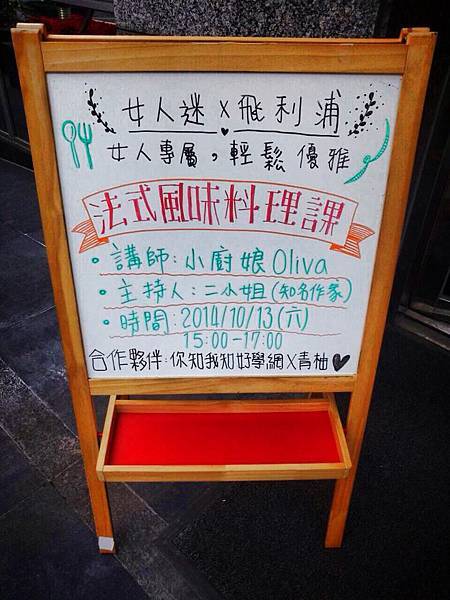 女人迷 X 飛利浦
女人專屬，輕鬆優雅
法式風味料理課
• 講師：小廚娘 Oliva
• 主持人：二小姐（知名作家）
• 時間：2014/10/13(六)
15:00-17:00
合作夥伴：你知我知好學網 X 青柚